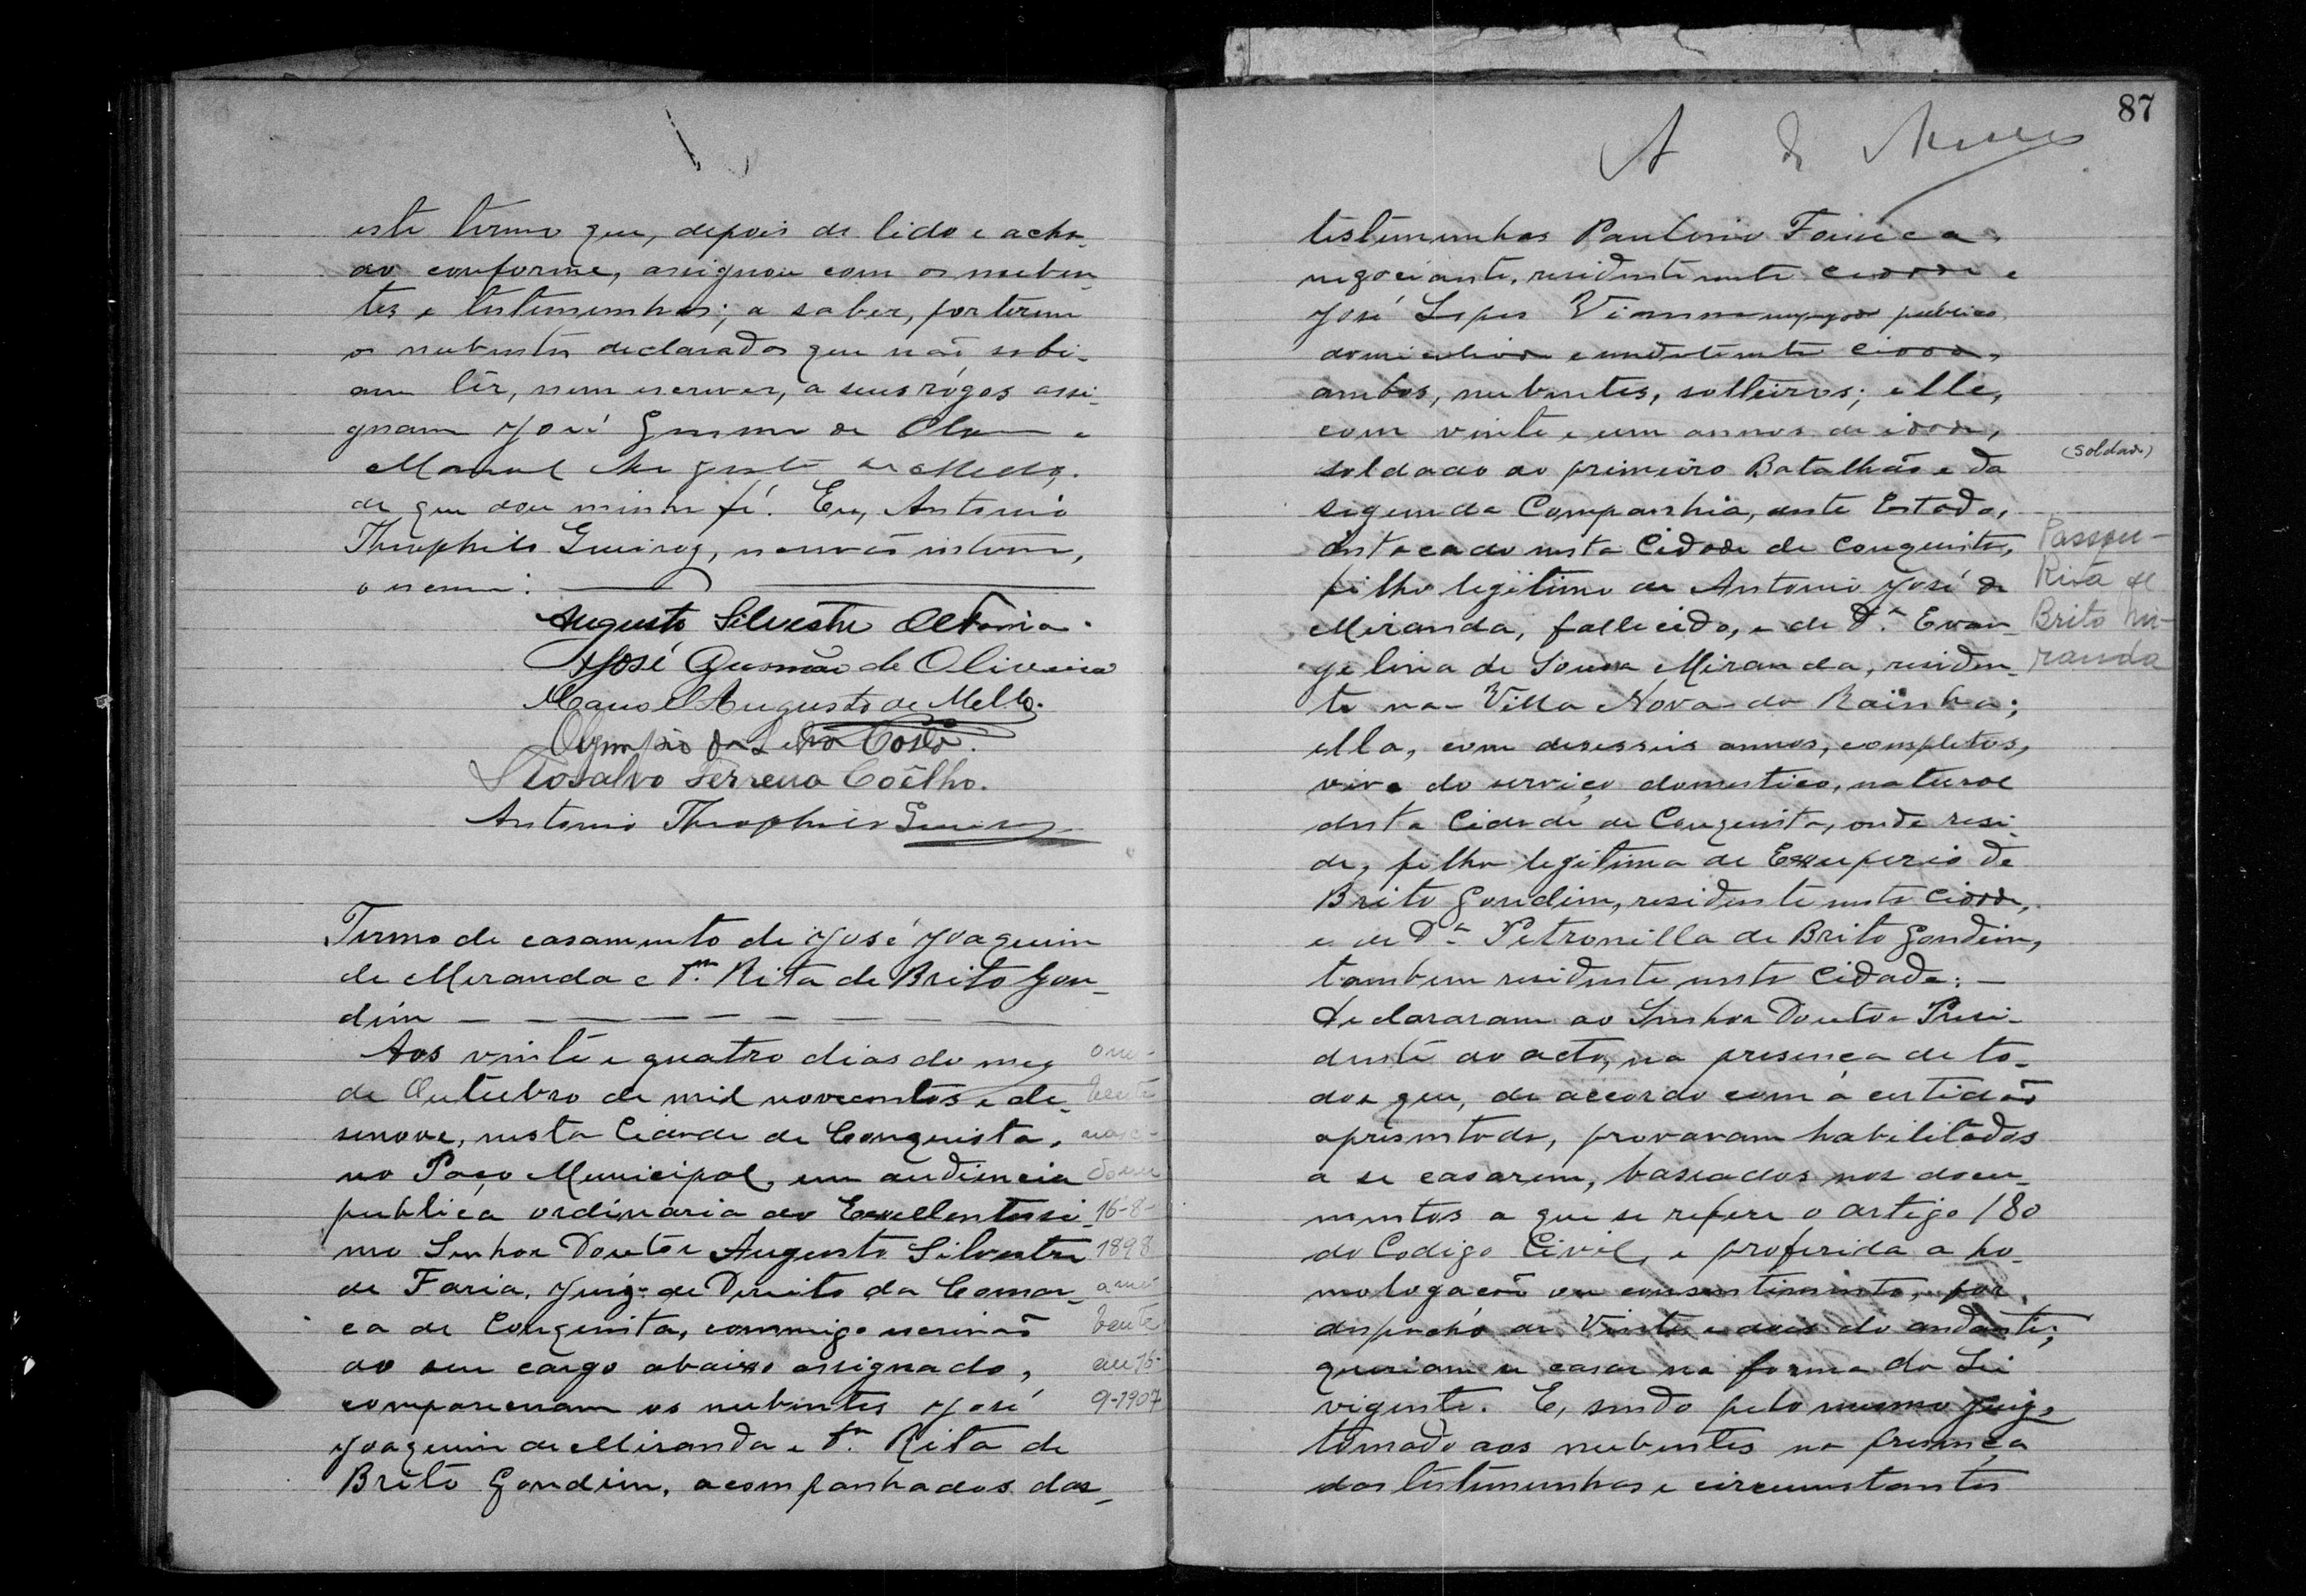 este termo que, depois de lido e acha-
do conforme, assignou com os nuben-
tes e testemunhas; a saber, por terem
os nubentes declarados que não sabi-
am lêr, nem escrever, a seus rógos assi-
gnam José Gusmão de
Manoel Augusto de Mello.
de que dou minha fé. Eu, Antonio
Theophilo Queiroz, escrivão interino,
o escrevi.
Augusto Silvestre de Faria.
José Gusmão de Oliveira
Manoel Augusto de Mello.
Olympio da Silva Costa.
Rosalvo Ferreira Coêlho.
Antonio Theophilo Queiroz
Termo de casamento de José Joaquim
de Miranda e D.ª Rita de Brito Gon-
dim
Aos vinte e quatro dias do mez
de Outubro de mil novecentos e de-
senove, nesta Cidade de Conquista,
no Paço Municipal, em audiencia
publica ordinaria do Excellentissi-
mo Senhor Doutor Augusto Silvestre
de Faria, Juiz de Direito da Comar-
ca de Conquista, commigo escrivão
do seu cargo abaixo assignado,
compareceram os nubentes José
Joaquim de Miranda e D.ª Rita de
Brito Gondim, acompanhados das
o nu-
bente
nasc-
16-8-
1898
a nu-
bente
9-1907
87
A de
testemunhas Paulonio Fonseca,
negociante, residente nesta cidade e
José Lopes Vianna empregado publico
domiciliado e residente nesta cidade,
ambos, nubentes, solteiros; elle,
com vinte e um annos de idade,
soldado do primeiro Batalhão e da
segunda Companhia, deste Estado,
destacado nesta Cidade de Conquista,
filho legitimo de Antonio José de
Miranda, fallecido, e de D.ª Evan-
gelina de Souza Miranda, residen-
te na Villa Nova da Rainha;
ella, com desesseis annos, completos,
vive do serviço domestico, natural
desta Cidade de Conquista, onde resi-
de, filha legitima de Exuperio de
Brito Gondim, residente nesta cidade,
e de D.ª Petronilla de Brito Gondim,
tambem residente nesta Cidade:
declararam ao Senhor Doutor Presi-
dente do acto, na presença de to-
dos que, de accordo com a certidão
apresentada, provavam habilitados
a se casarem, baseados nos docu-
mentos a que se refere o artigo 180
do Codigo Civil, e proferida a ho-
mologação ou consentimento, por
despacho de vinte e dois do andante;
queriam se casar na forma da Lei
vigente. E, sendo pelo mesmo Juiz
tomado aos nubentes na presença
das testemunhas e circumstantes
(soldado)
Passou-
Rita de
Brito Mi-
randa